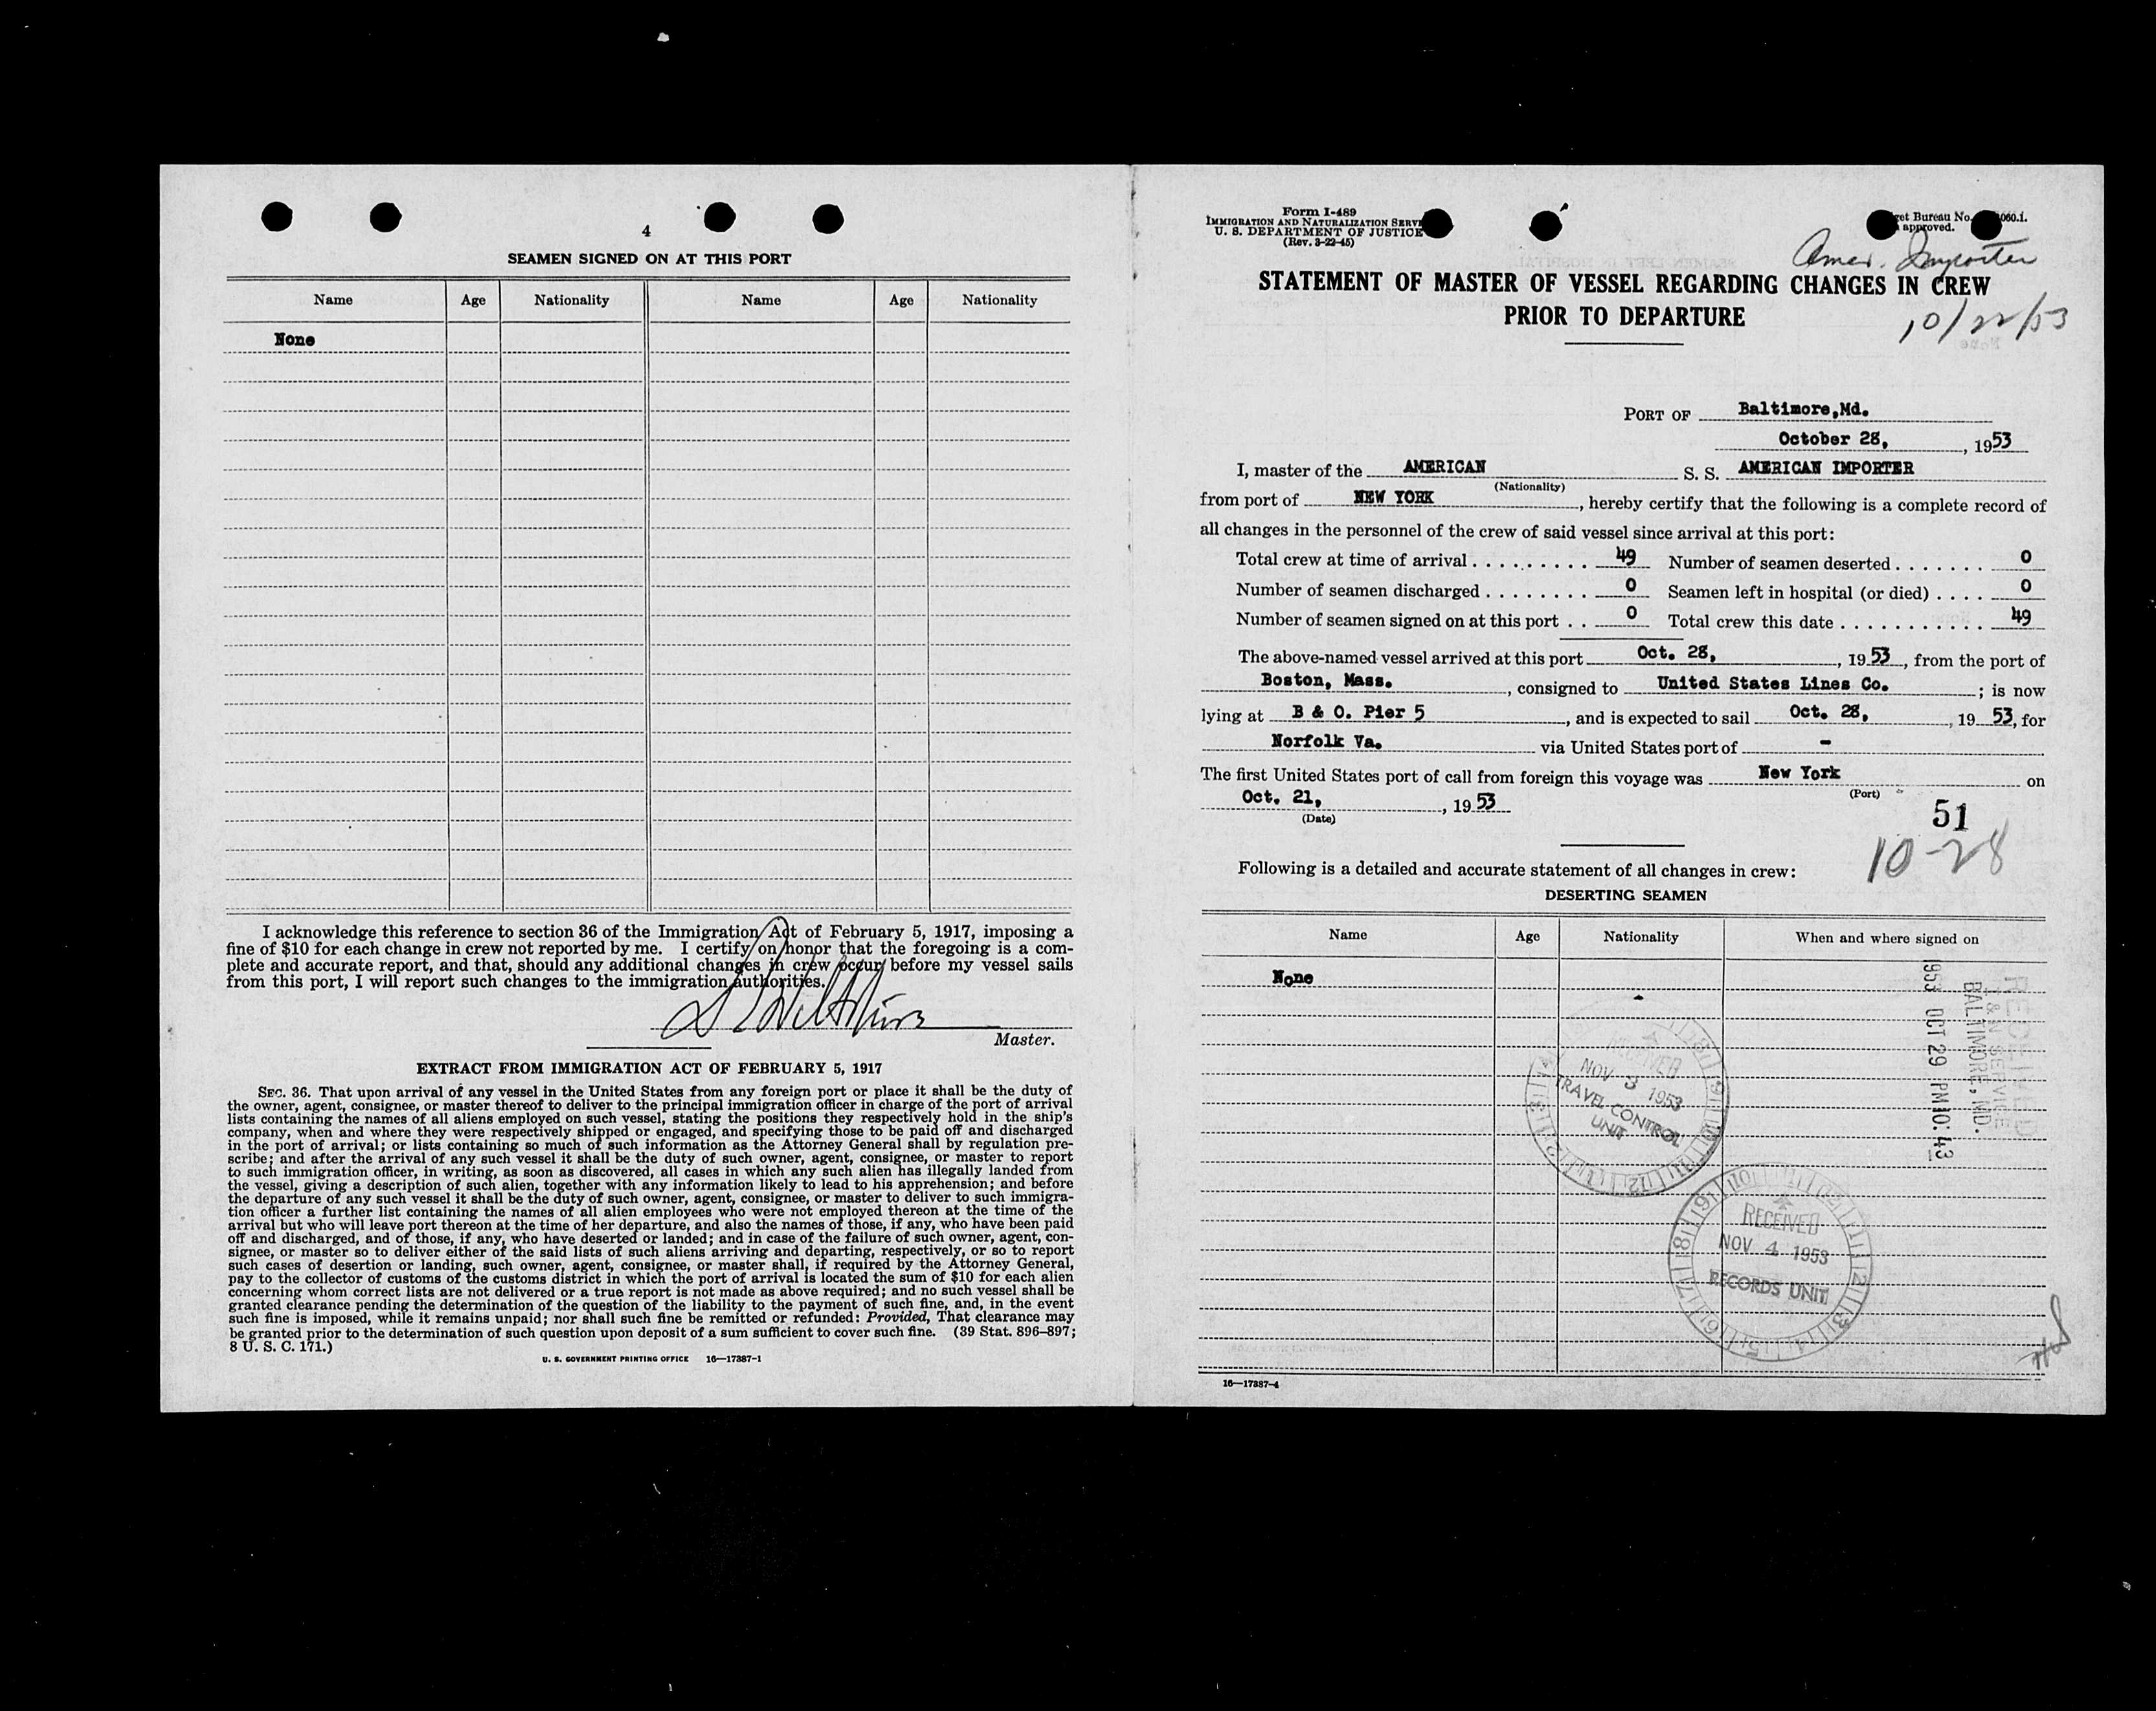 4
SEAMEN SIGNED ON AT THIS PORT
Name Age Nationality Name Age Nationality
None
I acknowledge this reference to section 36 of the Immigration Act of February 5, 1917, imposing a
fine of $10 for each change in crew not reported by me. I certify on honor that the foregoing is a com-
plete and accurate report, and that, should any additional changes in crew occur before my vessel sails
from this port, I will report such changes to the immigration authorities.
Master.
EXTRACT FROM IMMIGRATION ACT OF FEBRUARY 5, 1917
SEC. 36. That upon arrival of any vessel in the United States from any foreign port or place it shall be the duty of
the owner, agent, consignee, or master thereof to deliver to the principal immigration officer in charge of the port of arrival
lists containing the names of all aliens employed on such vessel, stating the positions they respectively hold in the ship's
company, when and where they were respectively shipped or engaged, and specifying those to be paid off and discharged
in the port of arrival; or lists containing so much of such information as the Attorney General shall by regulation pre-
scribe; and after the arrival of any such vessel it shall be the duty of such owner, agent, consignee, or master to report
to such immigration officer, in writing, as soon as discovered, all cases in which any such alien has illegally landed from
the vessel, giving a description of such alien, together with any information likely to lead to his apprehension; and before
the departure of any such vessel it shall be the duty of such owner, agent, consignee, or master to deliver to such immigra-
tion officer a further list containing the names of all alien employees who were not employed thereon at the time of the
arrival but who will leave port thereon at the time of her departure, and also the names of those, if any, who have been paid
off and discharged, and of those, if any, who have deserted or landed; and in case of the failure of such owner, agent, con-
signee, or master so to deliver either of the said lists of such aliens arriving and departing, respectively, or so to report
such cases of desertion or landing, such owner, agent, consignee, or master shall, if required by the Attorney General,
pay to the collector of customs of the customs district in which the port of arrival is located the sum of $10 for each alien
concerning whom correct lists are not delivered or a true report is not made as above required; and no such vessel shall be
granted clearance pending the determination of the question of the liability to the payment of such fine, and, in the event
such fine is imposed, while it remains unpaid; nor shall such fine be remitted or refunded: Provided, That clearance may
be granted prior to the determination of such question upon deposit of a sum sufficient to cover such fine. (39 Stat. 896–897;
8 U. S. C. 171.)
U. S. GOVERNMENT PRINTING OFFICE 16—17387-1
Form I-489
IMMIGRATION AND NATURALIZATION
U. S. DEPARTMENT OF JUSTICE
(Rev. 3-22-45)
Bureau No.
approved.
Amer. Importer
STATEMENT OF MASTER OF VESSEL REGARDING CHANGES IN CREW
PRIOR TO DEPARTURE
10/22/53
PORT OF Baltimore,Md.
October 28, , 1953
I, master of the AMERICAN S. S. AMERICAN IMPORTER
(Nationality)
from port of NEW YORK , hereby certify that the following is a complete record of
all changes in the personnel of the crew of said vessel since arrival at this port:
Total crew at time of arrival . . . . . . . . . 49 Number of seamen deserted . . . . . . . 0
Number of seamen discharged . . . . . . . . 0 Seamen left in hospital (or died) . . . . 0
Number of seamen signed on at this port . . 0 Total crew this date . . . . . . . . . . . 49
The above-named vessel arrived at this port Oct. 28, , 1953 , from the port of
Boston, Mass. , consigned to United States Lines Co. ; is now
lying at B & O. Pier 5 , and is expected to sail Oct. 28, , 19 53, for
Norfolk Va. via United States port of -
The first United States port of call from foreign this voyage was New York on
(Port)
Oct. 21, , 1953
(Date)
51
10-28
Following is a detailed and accurate statement of all changes in crew:
DESERTING SEAMEN
Name Age Nationality When and where signed on
None
RECEIVED
I & N SERVICE
BALTIMORE, MD.
1953 OCT 29 PM 10:43
RECEIVED
NOV 3 1953
TRAVEL CONTROL
UNIT
RECEIVED
NOV 4 1953
RECORDS UNIT
16—17387-4